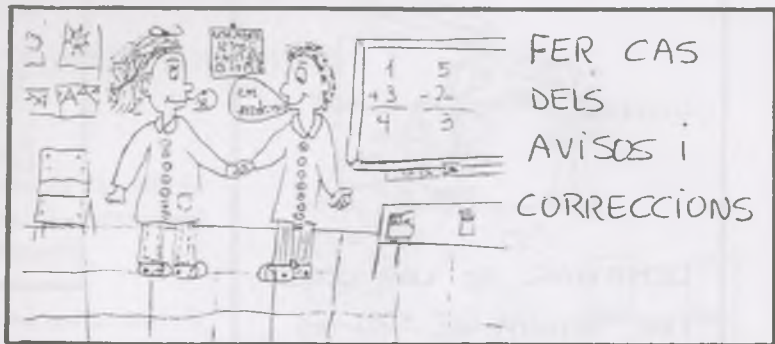 FER CAS
DELS
AVISOS i
CORRECCIONS
1 5
+3 -2
4 3
em